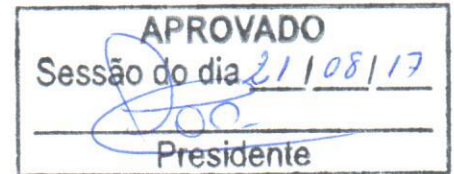 APROVADO
Sessão do dia 21/08/17
Presidente